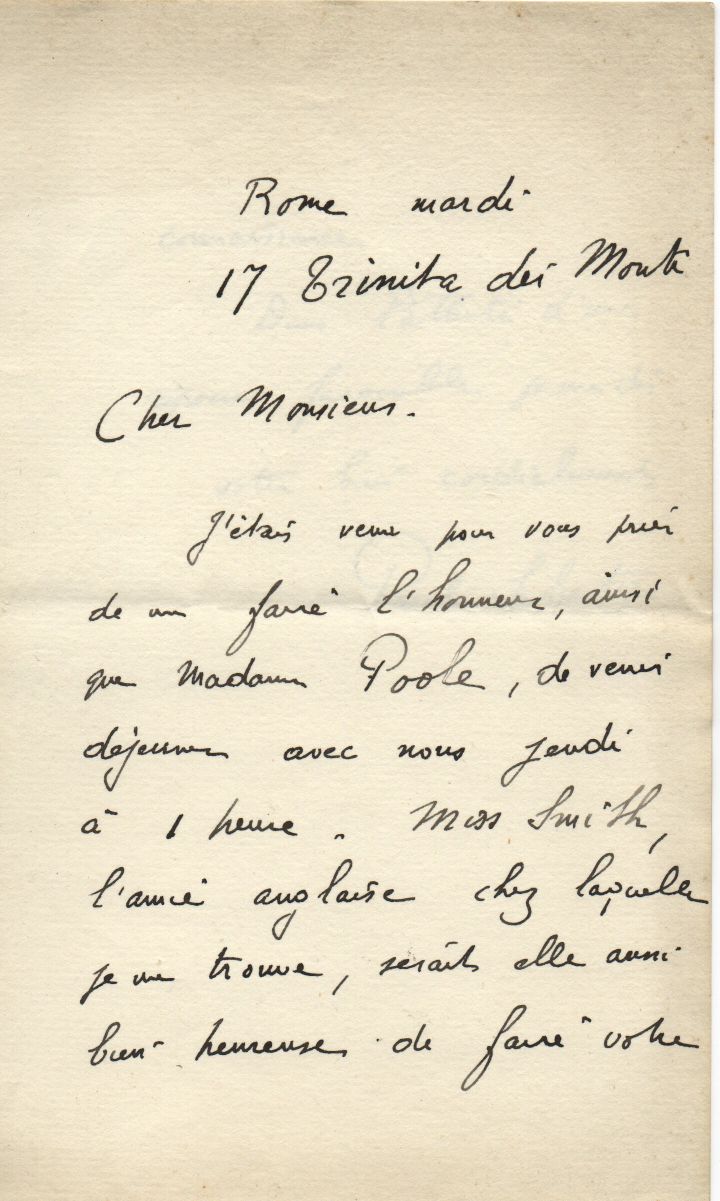 Rome mardi
17 Trinita dei Monti
Cher Monsieur.
J'étais venu pour vous prier
de me faire l'honneur, ainsi
que Madame Poole, de venir
déjeuner avec nous jeudi
à 1 heure. Miss Smith,
l'amie anglaise chez laquelle
je me trouve, serait elle aussi
bien heureuse de faire votre